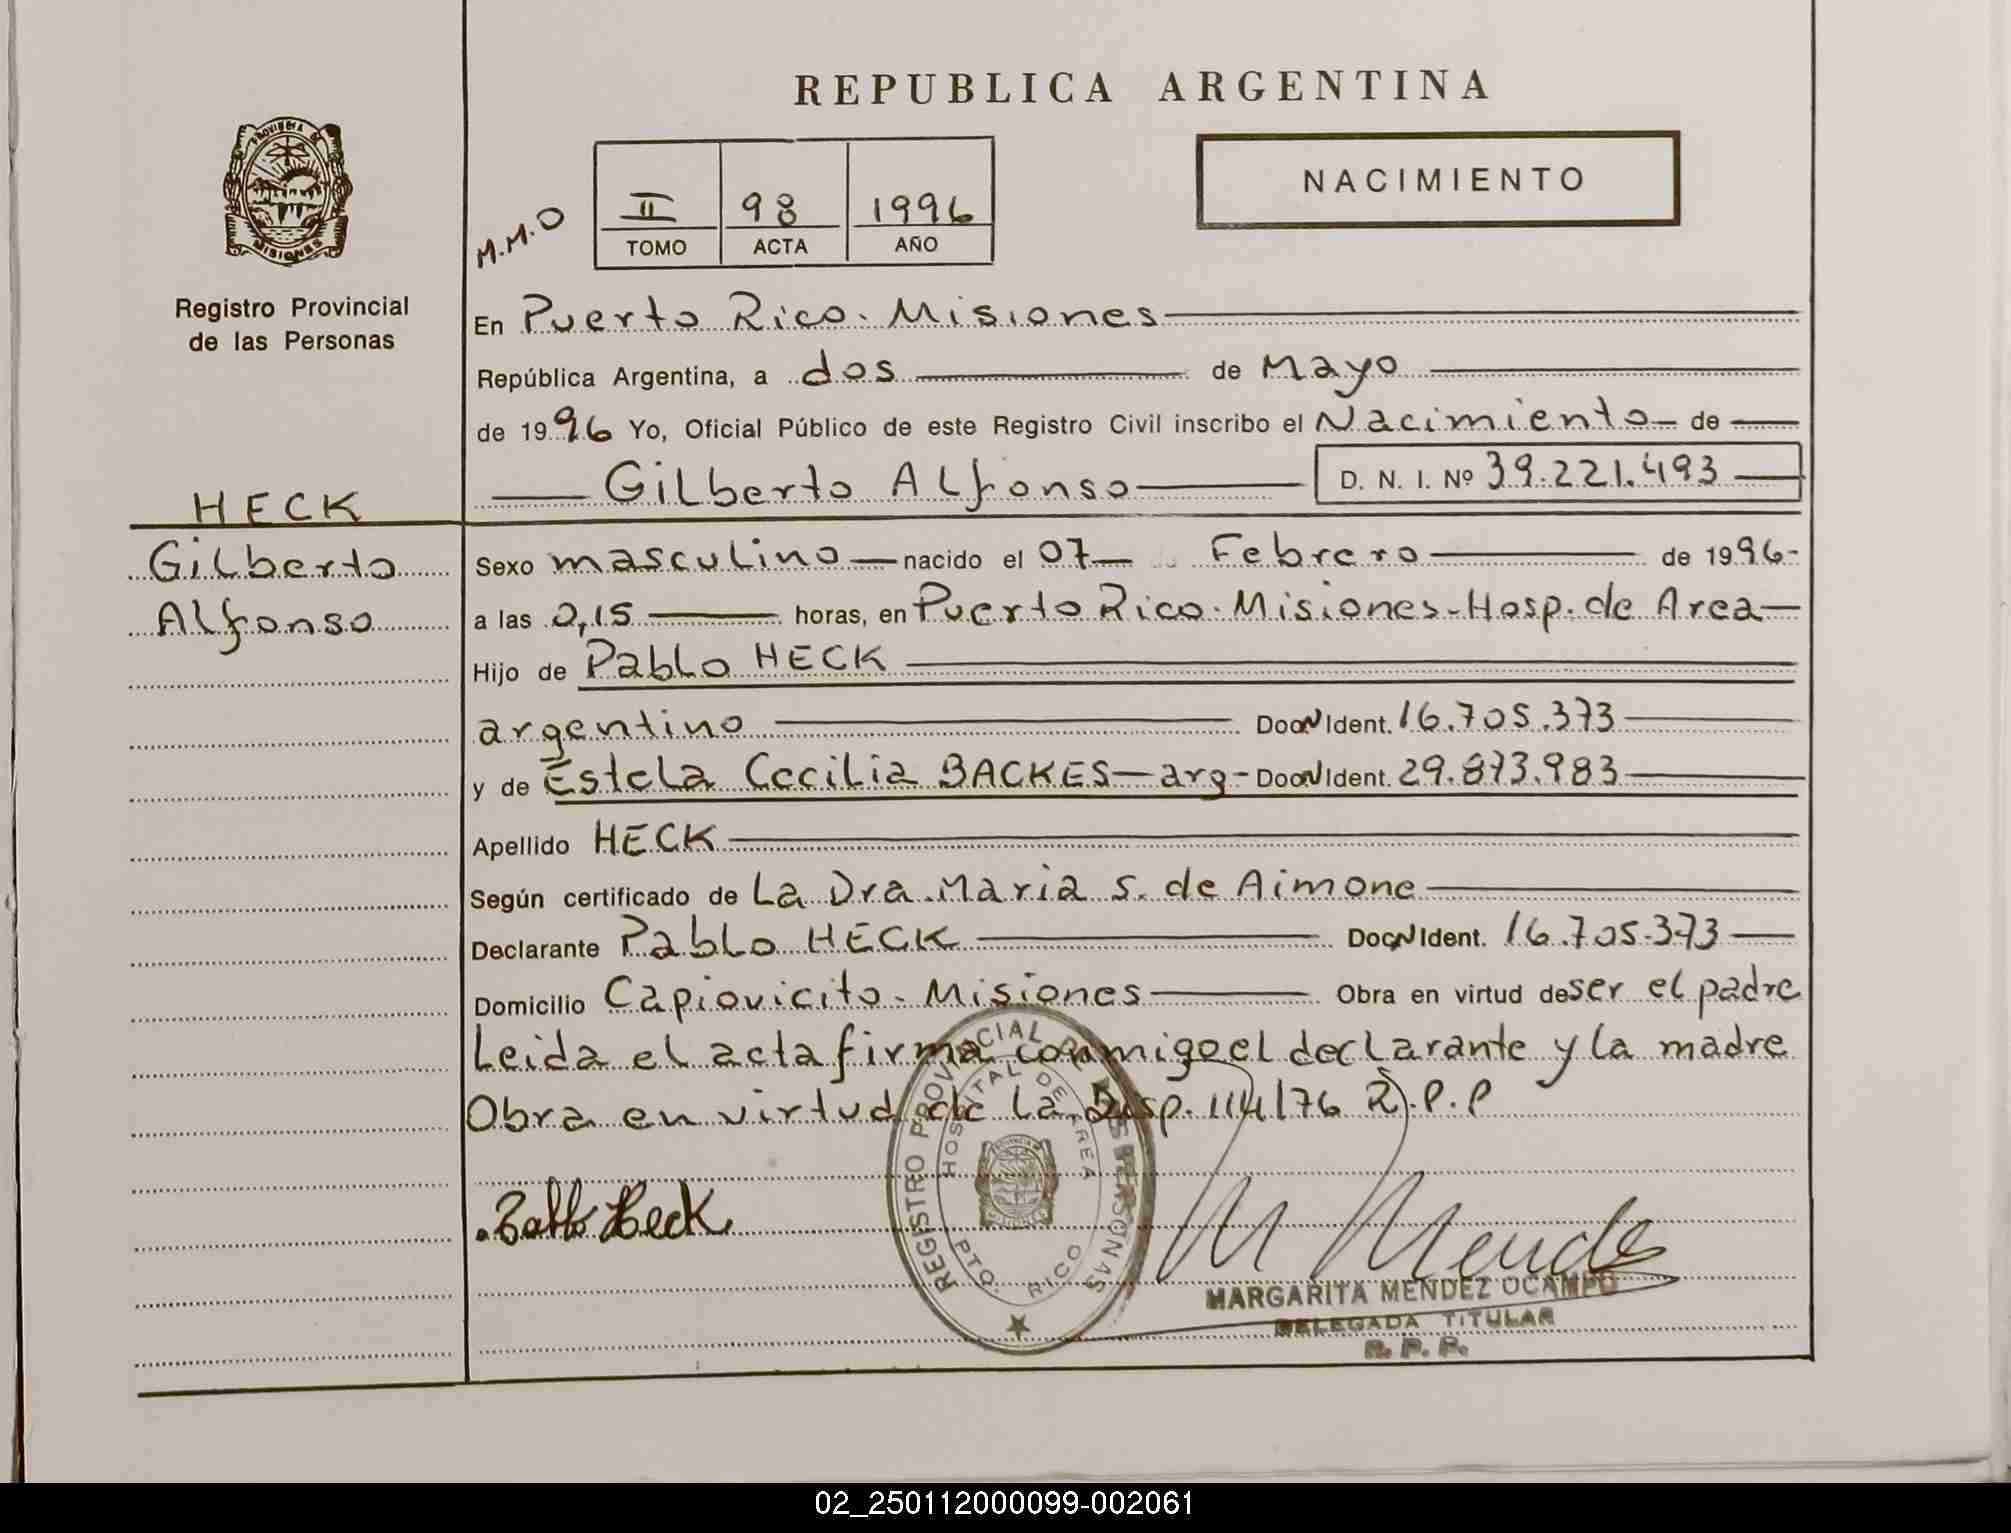 REPUBLICA ARGENTINA
NACIMIENTO
M.M.O
II 98 1996
TOMO ACTA AÑO
PROVINCIA DE
MISIONES
Registro Provincial
de las Personas
En Puerto Rico. Misiones
República Argentina, a dos de Mayo
de 1996 Yo, Oficial Público de este Registro Civil inscribo el Nacimiento de
Gilberto Alfonso D. N. I. Nº 39.221.493
HECK
Gilberto
Alfonso
Sexo masculino nacido el 07 Febrero de 1996-
a las 2,15 horas, en Puerto Rico. Misiones-Hosp. de Area
Hijo de Pablo HECK
argentino Doc Ident. 16.705.373
y de Estela Cecilia BACKES-arg- Doc Ident. 29.873.983
Apellido HECK
Según certificado de La Dra. Maria S. de Aimone
Declarante Pablo HECK Doc Ident. 16.705.373
Domicilio Capiovicito. Misiones Obra en virtud de ser el padre
Leida el acta firma conmigo el declarante y la madre
Obra en virtud de la Disp. 114/76 R.P.P
Pablo Heck
REGISTRO PROVINCIAL DE LAS PERSONAS
HOSPITAL DE AREA
PTO. RICO
M Mende
MARGARITA MENDEZ OCAMPO
DELEGADA TITULAR
R. P. P.
02_250112000099-002061